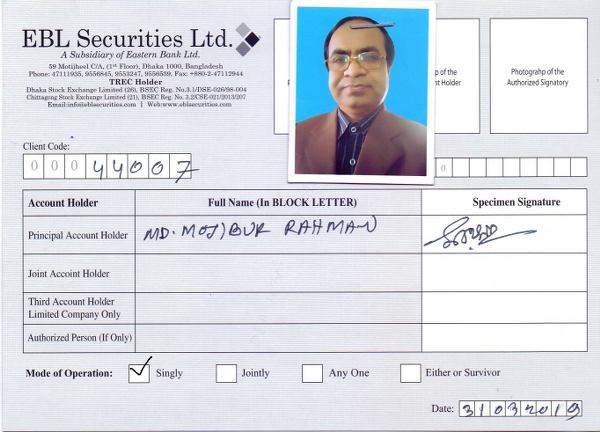 EBL Securities Ltd.
A Subsidiary of Eastern Bank Ltd.
59 Motijheel C/A, (1st Floor), Dhaka 1000, Bangladesh
Phone: 47111935, 9556845, 9553247, 9556539, Fax: +880-2-47112944
TREC Holder
Dhaka Stock Exchange Limited (26), BSEC Reg. No.3.1/DSE-026/98-004
Chittagong Stock Exchange Limited (21), BSEC Reg. No. 3.2/CSE-021/2013/207
Email:info@eblsecurities.com | Web:www.eblsecurities.com
ph of the
t Holder
Photograhp of the
Authorized Signatory
Client Code:
0 0 0 4 4 0 0 7
0
Account Holder Full Name (In BLOCK LETTER) Specimen Signature
Principal Account Holder MD. MOJIBUR RAHMAN
Joint Accoint Holder
Third Account Holder
Limited Company Only
Authorized Person (If Only)
Mode of Operation: Singly Jointly Any One Either or Survivor
Date: 31032019